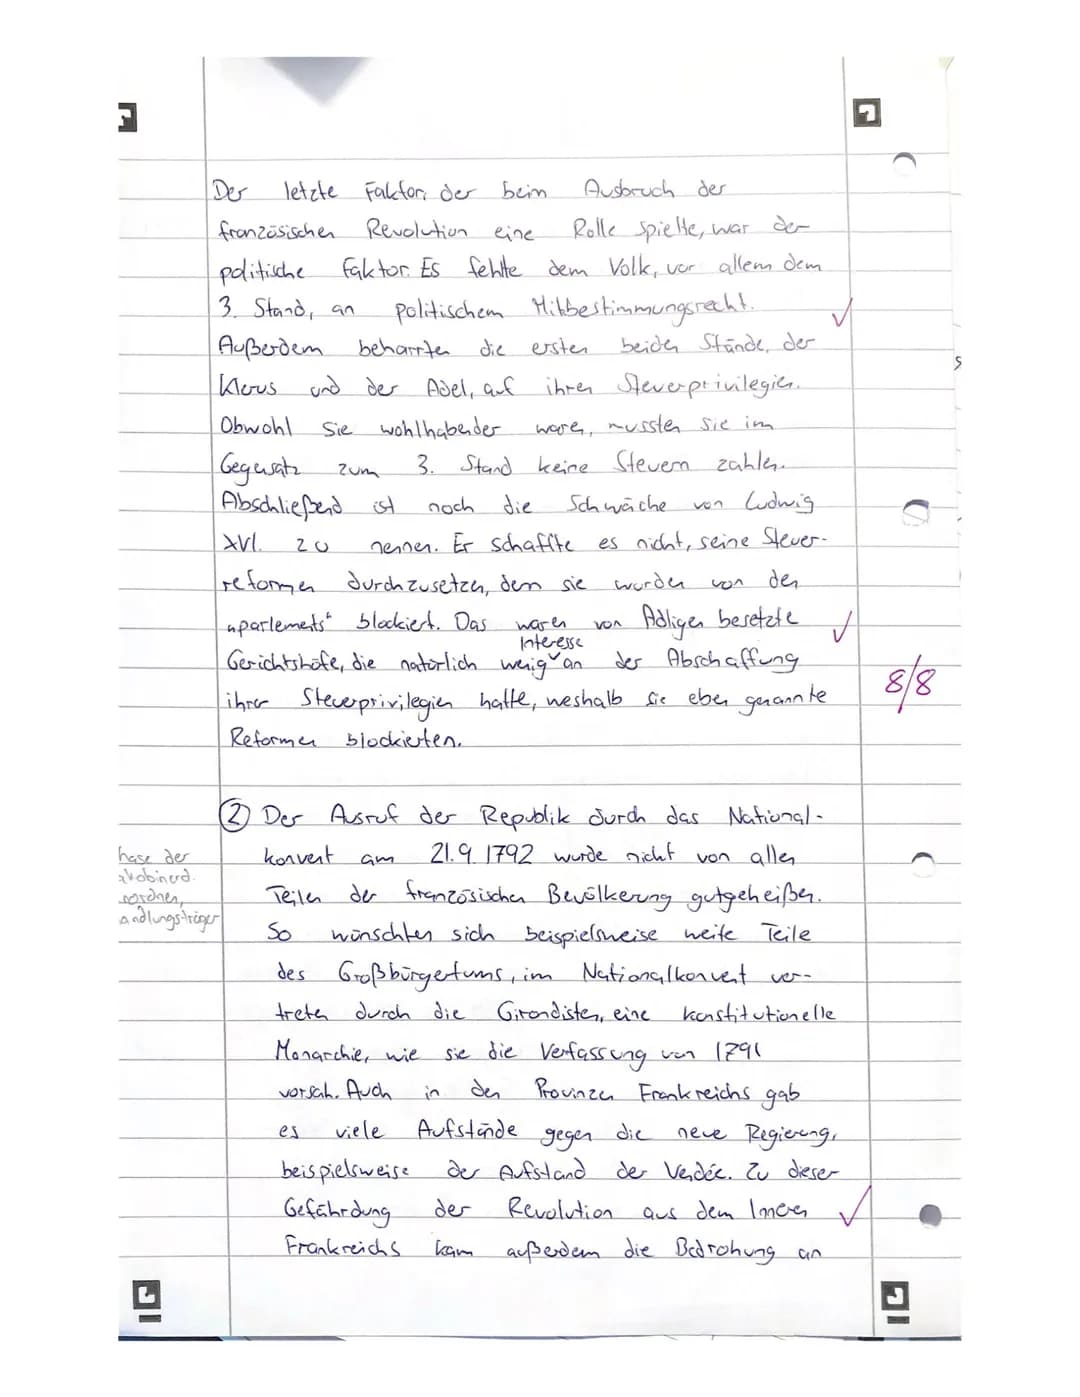 Der letzte Faktor, der beim Ausbruch der
französischen Revolution eine Rolle spielte, war der
politische Faktor. Es fehlte dem Volk, vor allem dem
3. Stand, an politischem Mitbestimmungsrecht.
Außerdem beharrten die ersten beiden Stände, der
Klerus und der Adel, auf ihren Steuerprivilegien.
Obwohl sie wohlhabender waren, mussten sie im
Gegensatz zum 3. Stand keine Steuern zahlen.
Abschließend ist noch die Schwäche von Ludwig
XVI. zu nennen. Er schaffte es nicht, seine Steuer-
reformen durchzusetzen, denn sie wurden von den
„parlements“ blockiert. Das waren von Adligen besetzte
Interesse
Gerichtshöfe, die natürlich wenig an der Abschaffung
ihrer Steuerprivilegien hatte, weshalb sie eben genannte
Reformen blockierten.
8/8
② Der Ausruf der Republik durch das National-
konvent am 21.9.1792 wurde nicht von allen
Teilen der französischen Bevölkerung gutgeheißen.
So wünschten sich beispielsweise weite Teile
des Großbürgertums, im Nationalkonvent ver-
treten durch die Girondisten, eine konstitutionelle
Monarchie, wie sie die Verfassung von 1791
vorsah. Auch in den Provinzen Frankreichs gab
es viele Aufstände gegen die neue Regierung,
beispielsweise der Aufstand der Vendée. Zu dieser
Gefährdung der Revolution aus dem Inneren
Frankreichs kam außerdem die Bedrohung an
hase der
akobinerd.
andlungsträger